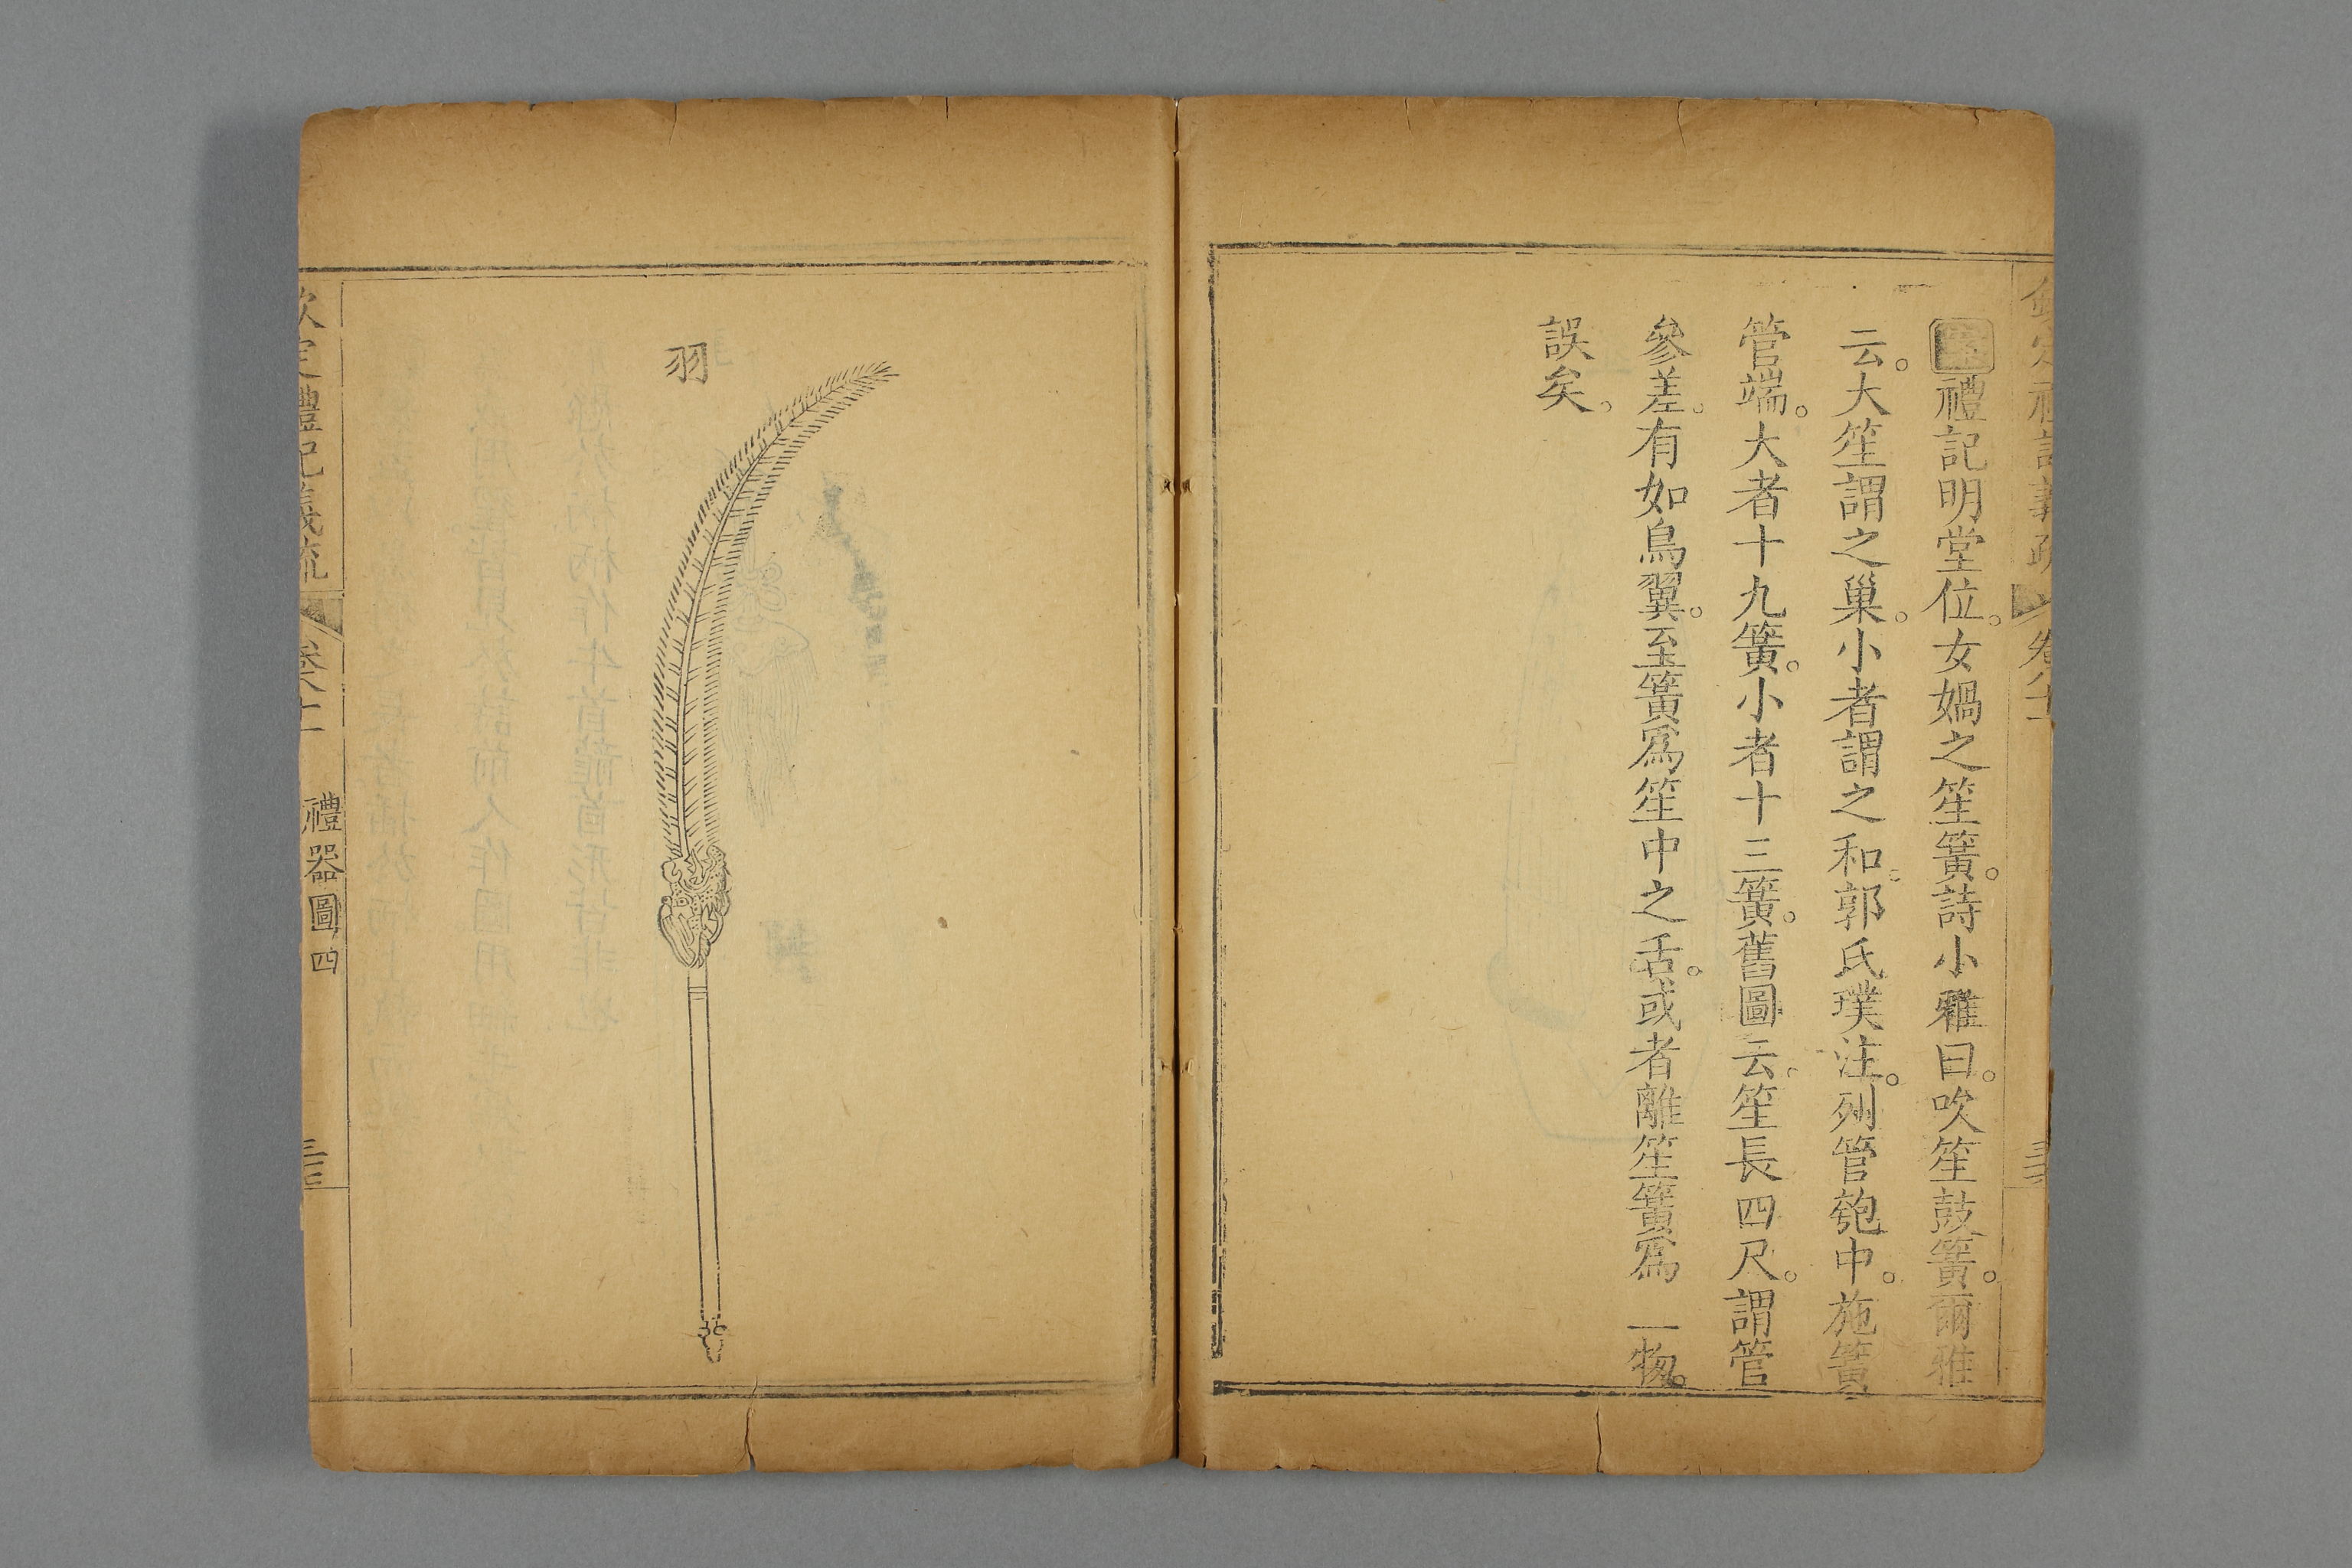 禮記明堂位。女媧之笙簧。詩小雅曰。吹笙鼓簧。爾雅
云。大笙謂之巢。小者謂之和。郭氏璞注。列管匏中。施簧
管端。大者十九簧。小者十三簧。舊圖云。笙長四尺。謂管
參差。有如鳥翼。至簧爲笙中之舌。或者離笙簧爲一物。
誤矣。
羽
欽定禮記義疏 卷八十二 禮器圖四 三三